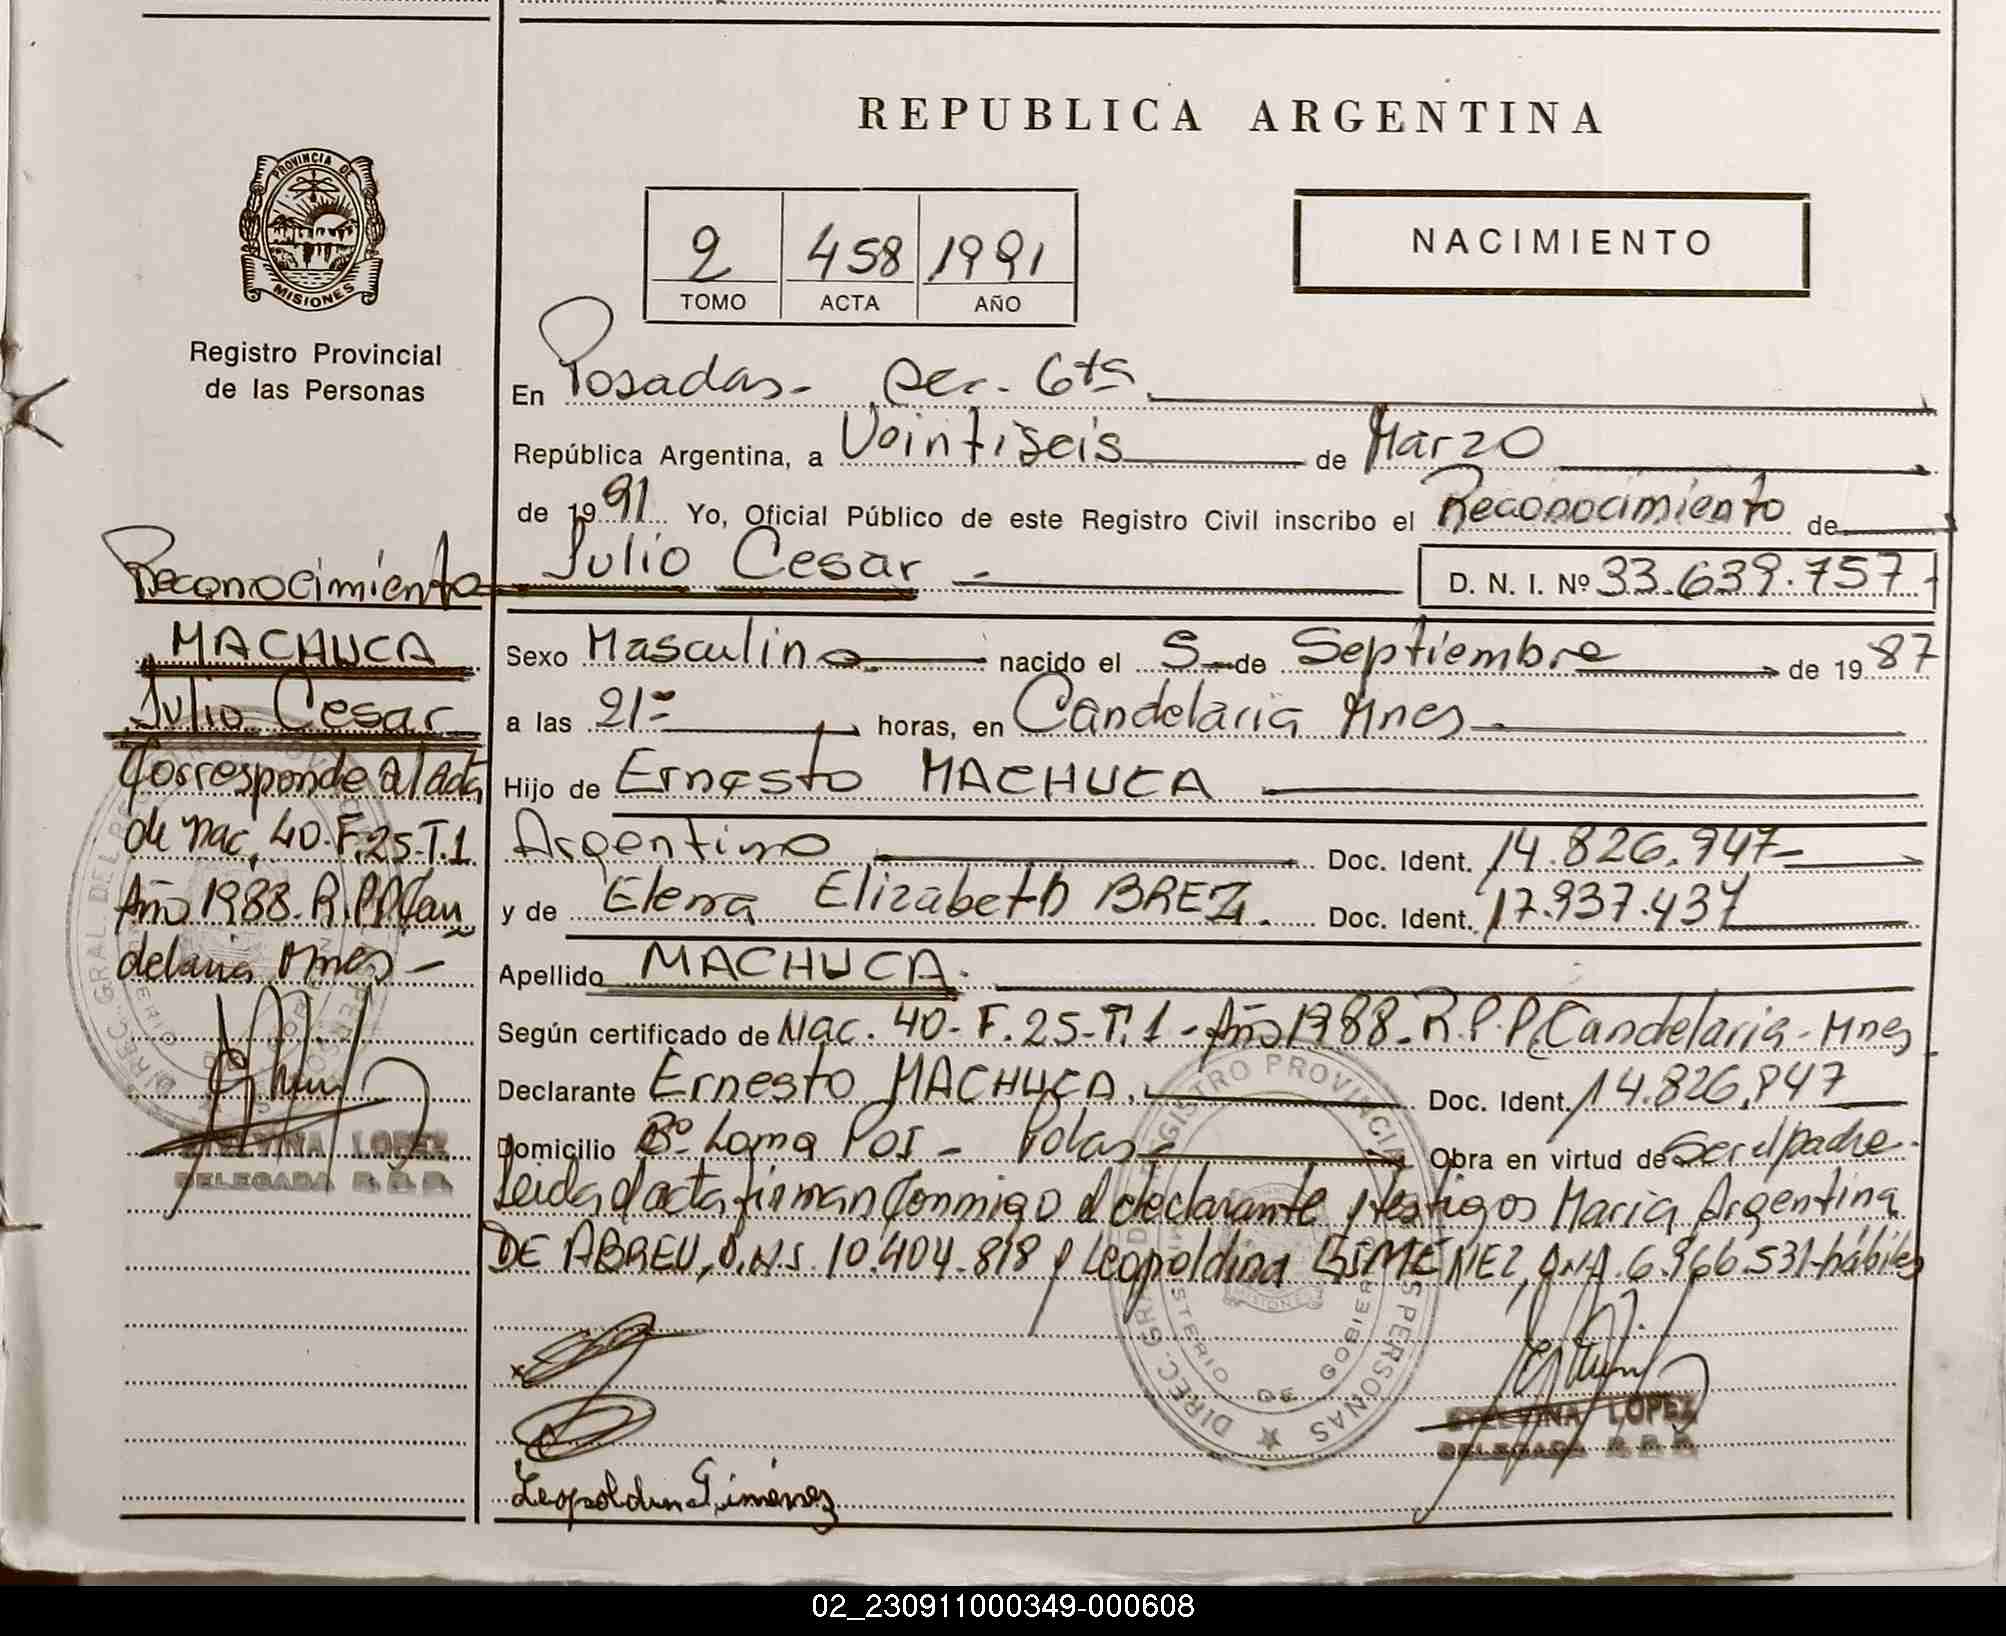 REPUBLICA ARGENTINA
PROVINCIA DE
MISIONES
Registro Provincial
de las Personas
2 458 1991
TOMO ACTA AÑO
NACIMIENTO
En Posadas - Sec. 6ta
República Argentina, a Veintiseis de Marzo
de 1991 Yo, Oficial Público de este Registro Civil inscribo el Reconocimiento de
Julio Cesar - D. N. I. Nº 33.639.757-
Sexo Masculino nacido el 5 de Septiembre de 1987
a las 21= horas, en Candelaria Mnes
Hijo de Ernesto MACHUCA
Argentino Doc. Ident. 14.826.947-
y de Elena Elizabeth BREZ. Doc. Ident. 17.937.437
Apellido MACHUCA.
Según certificado de Nac. 40- F. 25-T. 1 - Año 1988. R.P.P. Candelaria - Mnes
Declarante Ernesto MACHUCA. Doc. Ident. 14.826.947
Domicilio Bº Loma Poi - Pdas - Obra en virtud de ser el padre.
Leida el acta firman conmigo el declarante y testigos Maria Argentina
DE ABREU, D.N.I. 10.404.818 y Leopoldina GIMENEZ, D.N.I. 6.966.531-hábiles
Leopoldina Gimenez
DIREC. GRAL. DEL REGISTRO PROVINCIAL DE LAS PERSONAS
MINISTERIO DE GOBIERNO
MISIONES
ETELVINA LOPEZ
DELEGADA R. P. P.
Reconocimiento
MACHUCA
Julio Cesar
Corresponde al acta
de nac. 40-F.25-T.1
Año 1988. R.P.P. Can
delaria Mnes -
ETELVINA LOPEZ
DELEGADA R. P. P.
02_230911000349-000608